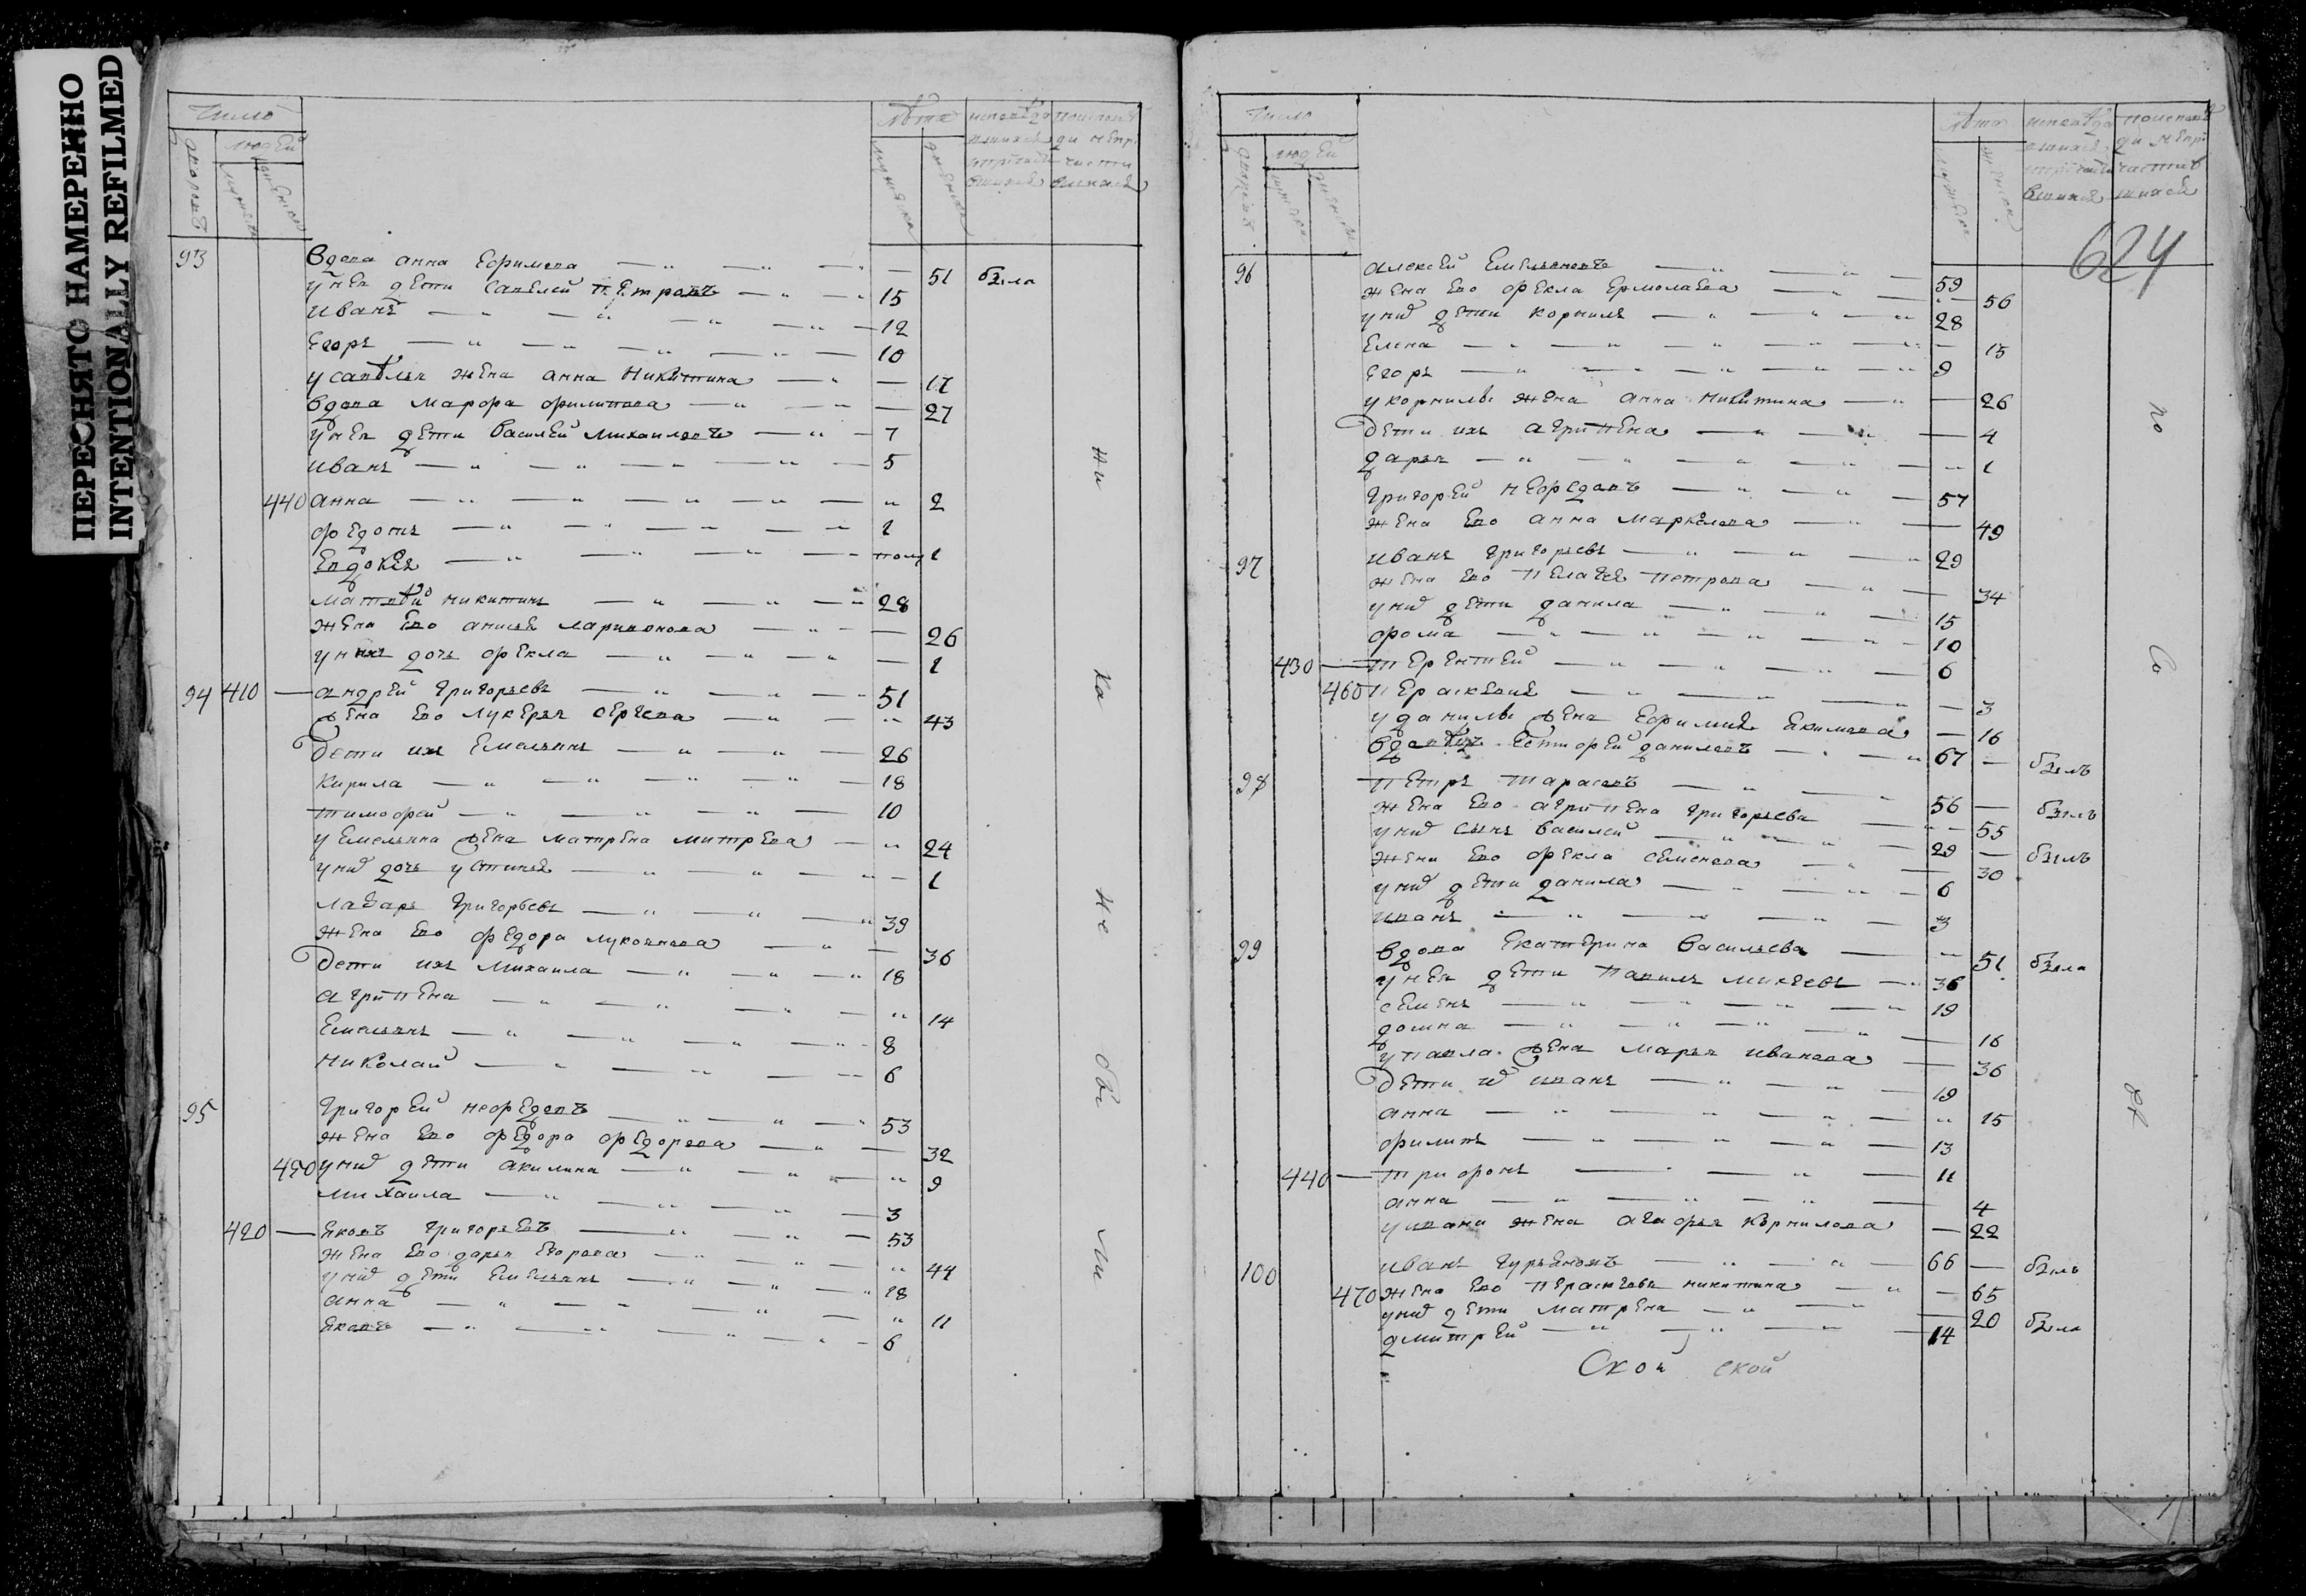 ПЕРЕСНЯТО НАМЕРЕННО
INTENTIONALLY REFILMED
Число
людей
Лѣта
93 Вдова анна Ефимова — 51 была
у неи дети Савелей Петровъ 15
иванъ 12
Егоръ 10
у савѣлья жена анна Никитина — 17
Вдова Марфа филипова — 27
у неи дети василей михаиловъ 7
иванъ 5
440 анна 2
федотъ 1
Евдокїя полу 1
матвѣй никитинъ 28
жена Ево анисья ларионова — 26
у них дочь фекла — 1
94 410 — андрей григорьевъ 51
жена Ево лукерья сергева 43
Дети ихъ Емельянъ 26
кирила 18
тимофей 10
у Емельяна жена матрена митрева 24
у них дочь устинья — 1
лазарь григорьевъ 39
жена Ево федора лукоянова 36
Дети ихъ михаила 18
агрипена 14
Емельянъ 8
николай 6
95 григорей нефедовъ 53
жена Ево федора федорова 32
450 у них дети акилина 9
михаила 3
420 — яковъ григорьевъ 53
жена Ево дарья Егорова 44
у них дети Емельянъ 18
анна 11
яковъ 6
ни ка но въ ми
Число
людей
Лѣта
624
96 алексей Емельяновъ 59
жена Ево фекла Ермолаева 56
у них дети корнилъ 28
Елена 15
Егоръ 9
у корнилы жена анна никитина — 26
Дети ихъ агрипена — 4
дарья 1
григорей нефедовъ 57
жена Ево анна маркелова — 49
97 иванъ григорьевъ 29
жена Ево пелагея петрова — 34
у них дети данила 15
фома 10
430 — терентей 6
460 Пераскевия — 3
у данилы жена Ефимия Екимова — 16
даниловъ 67 — былъ
98 Петръ тарасовъ 56 — былъ
жена Ево агрипена григорьева 55
у них сынъ василей 29 — былъ
жена Ево фекла семенова 30
у них дети данила 6
иванъ 3
99 Вдова Екатерина васильева 51 была
у неи дети павилъ 36
семенъ 19
домна 16
у павла жена марья иванова 36
Дети их иванъ 19
анна 15
филипъ 13
440 — трифонъ 11
анна 4
у ивана жена агафья корнилова — 22
100 иванъ гурьяновъ 66 — былъ
470 жена Ево никитина — 65
у них дети матрена 20 была
дмитрей 14
Ской ской
по
Со